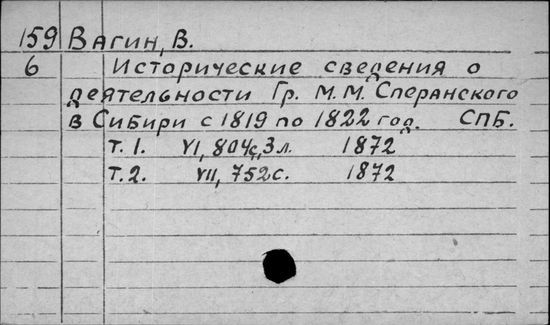 159 Вагин, В.
6 Исторические сведения о
деятельности Гр. М. М. Сперанского
в Сибири с 1819 по 1822 год. СПБ.
Т. 1. VI, 804с, 3 л. 1872
Т. 2. VII, 752 с. 1872